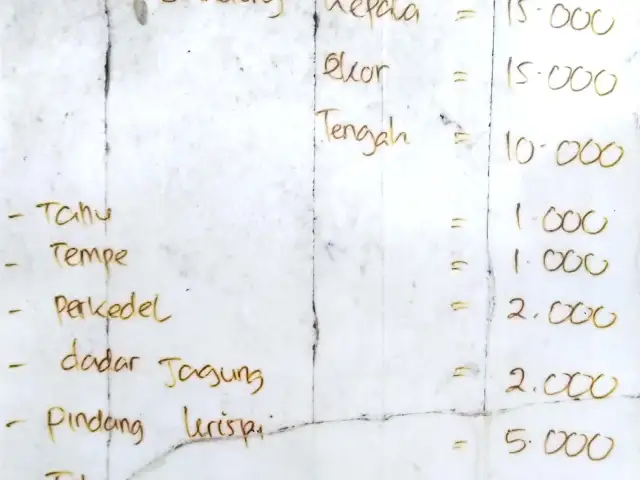 Kepala = 15.000
Ekor = 15.000
Tengah = 10.000
- Tahu = 1.000
- Tempe = 1.000
- Perkedel = 2.000
- dadar Jagung = 2.000
- Pindang krispi = 5.000